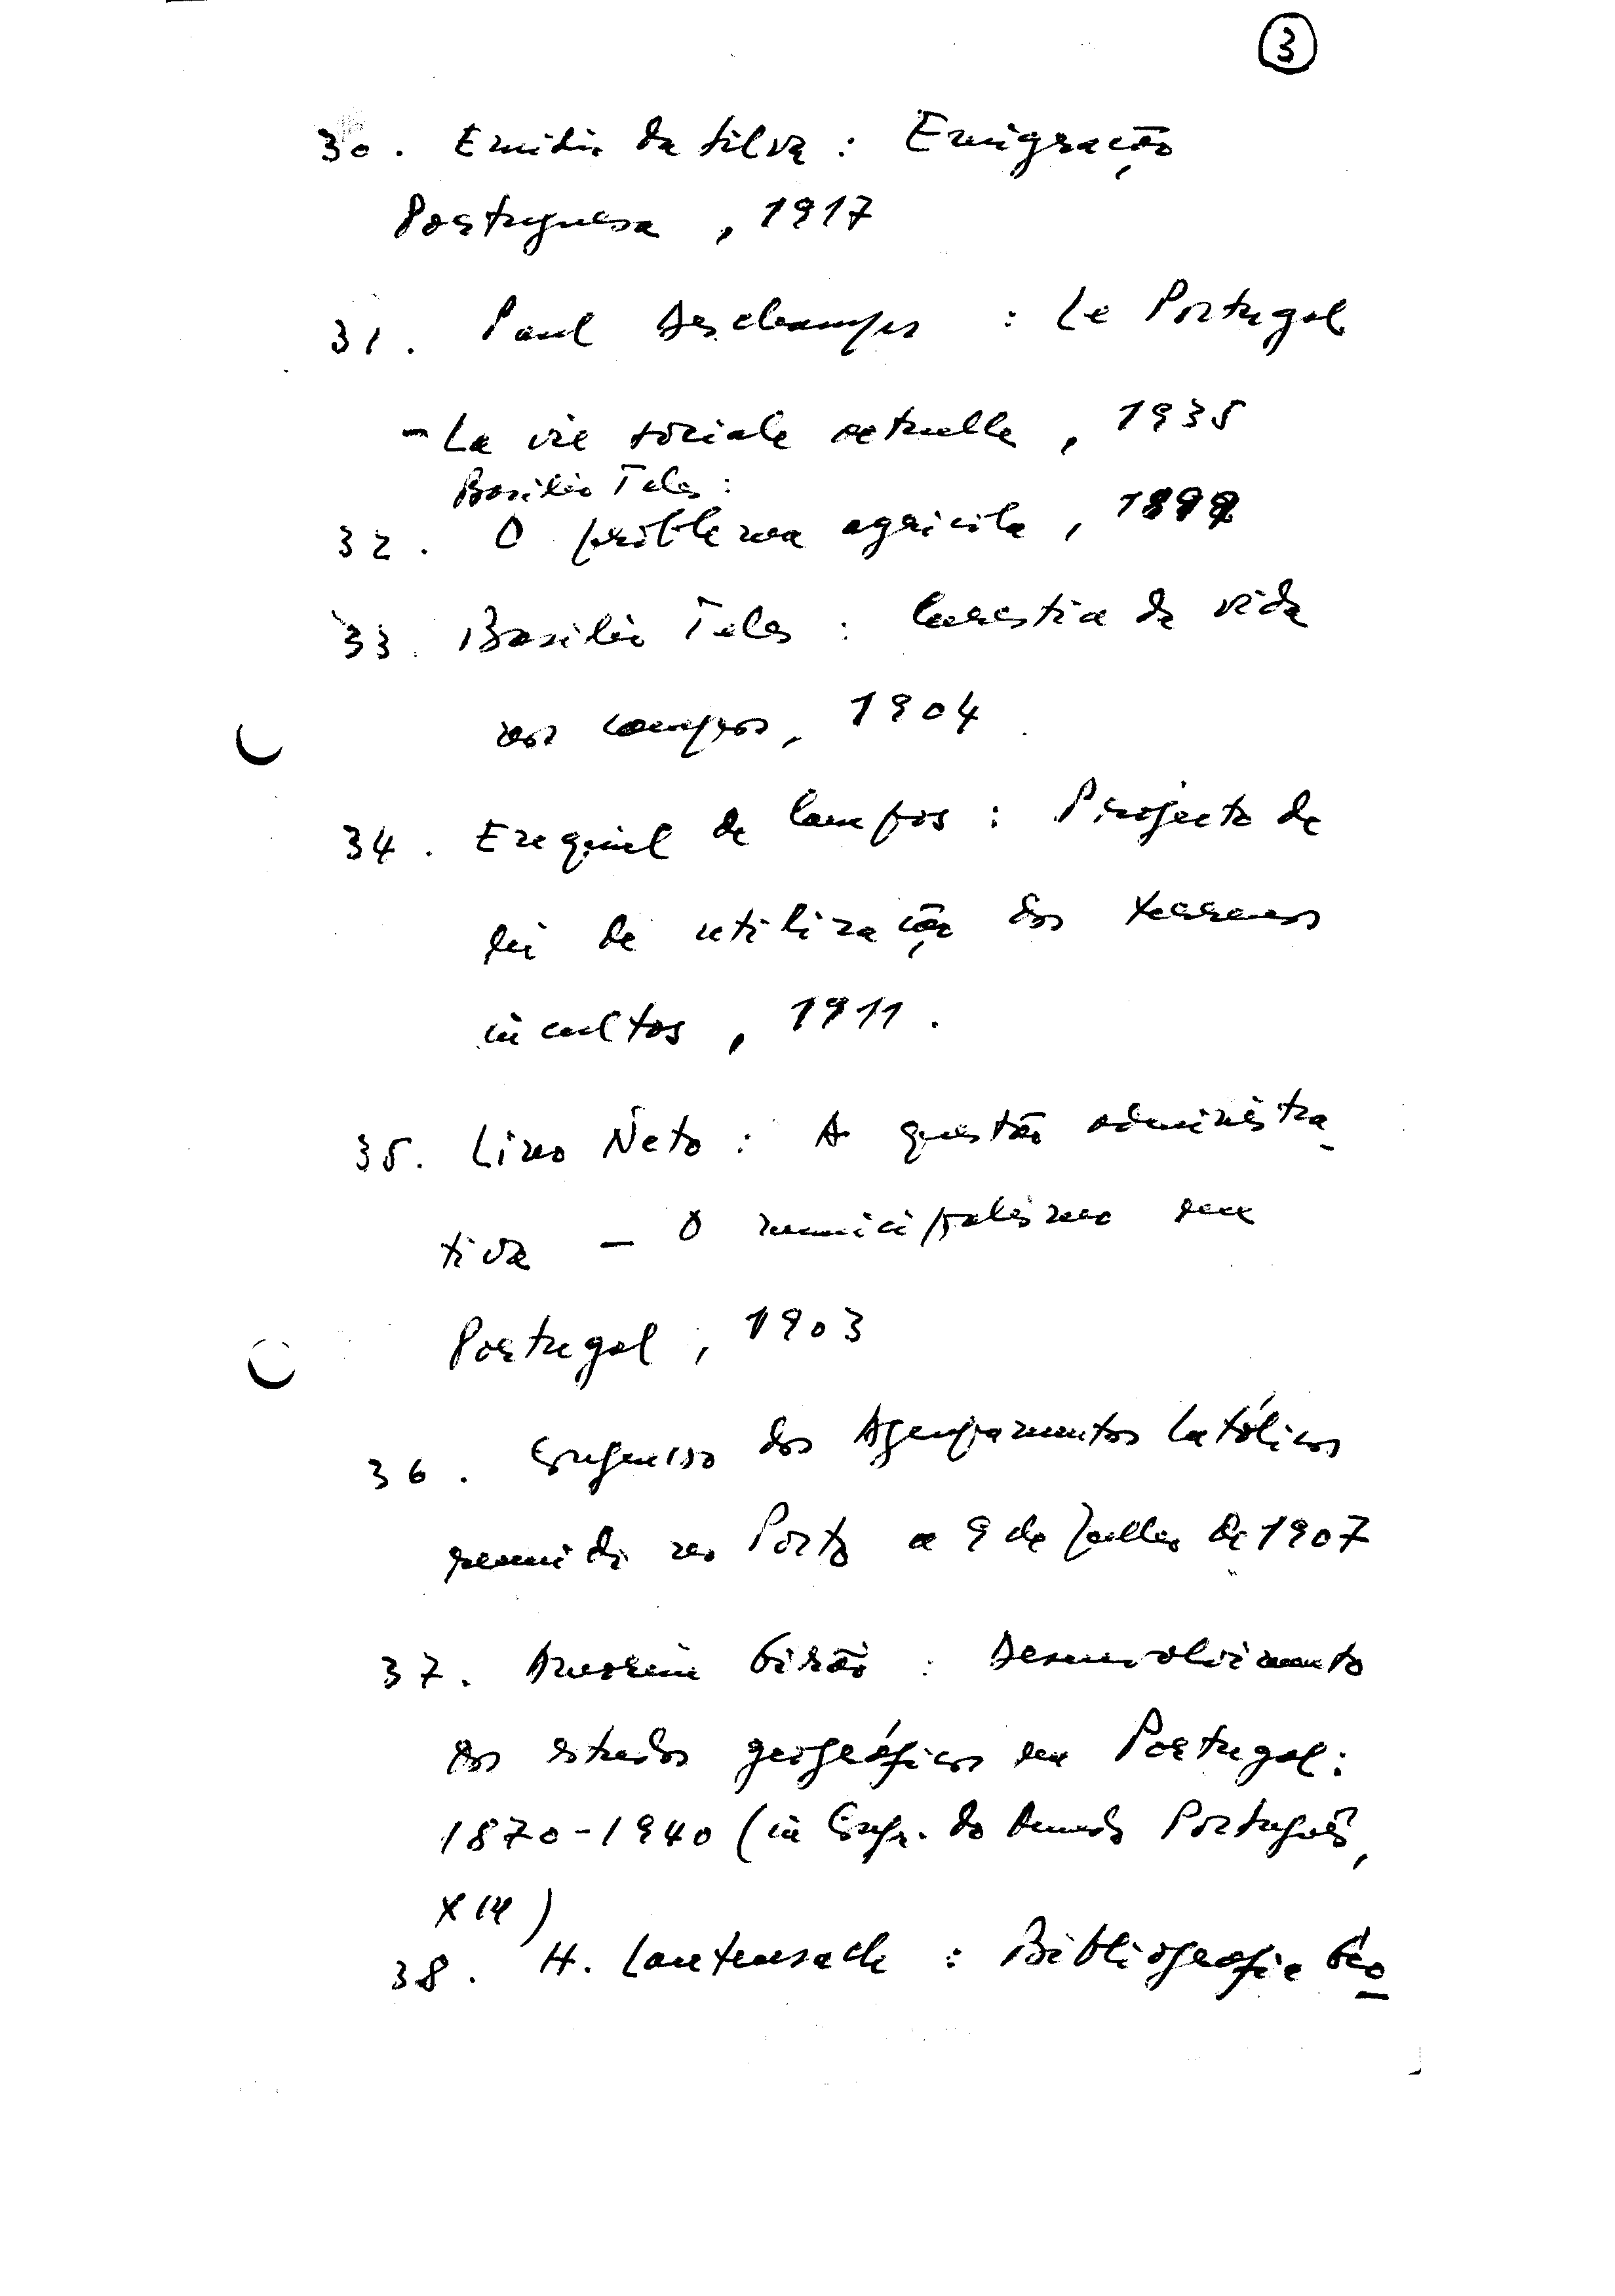 3
30. Emídio da Silva : Emigração
Portuguesa , 1917
31. Paul Deschamps : Le Portugal
- La vie sociale actuelle , 1935
Basílio Teles :
32. O problema agrícola , 1899
33. Basílio Teles : Carestia da vida
nos campos, 1904
34. Ezequiel de Campos : Projecto de
lei de utilização dos terrenos
incultos , 1911 .
35. Lino Neto : A questão administra-
tiva - O municipalismo em
Portugal , 1903
36. Congresso dos Agrupamentos Católicos
reunido no Porto a 9 de Julho de 1907
37. Amorim Girão : Desenvolvimento
dos estudos geográficos em Portugal :
1870-1940 (in Congr. do Mundo Português,
)
38. H. Lautensach : Bibliografia Geo